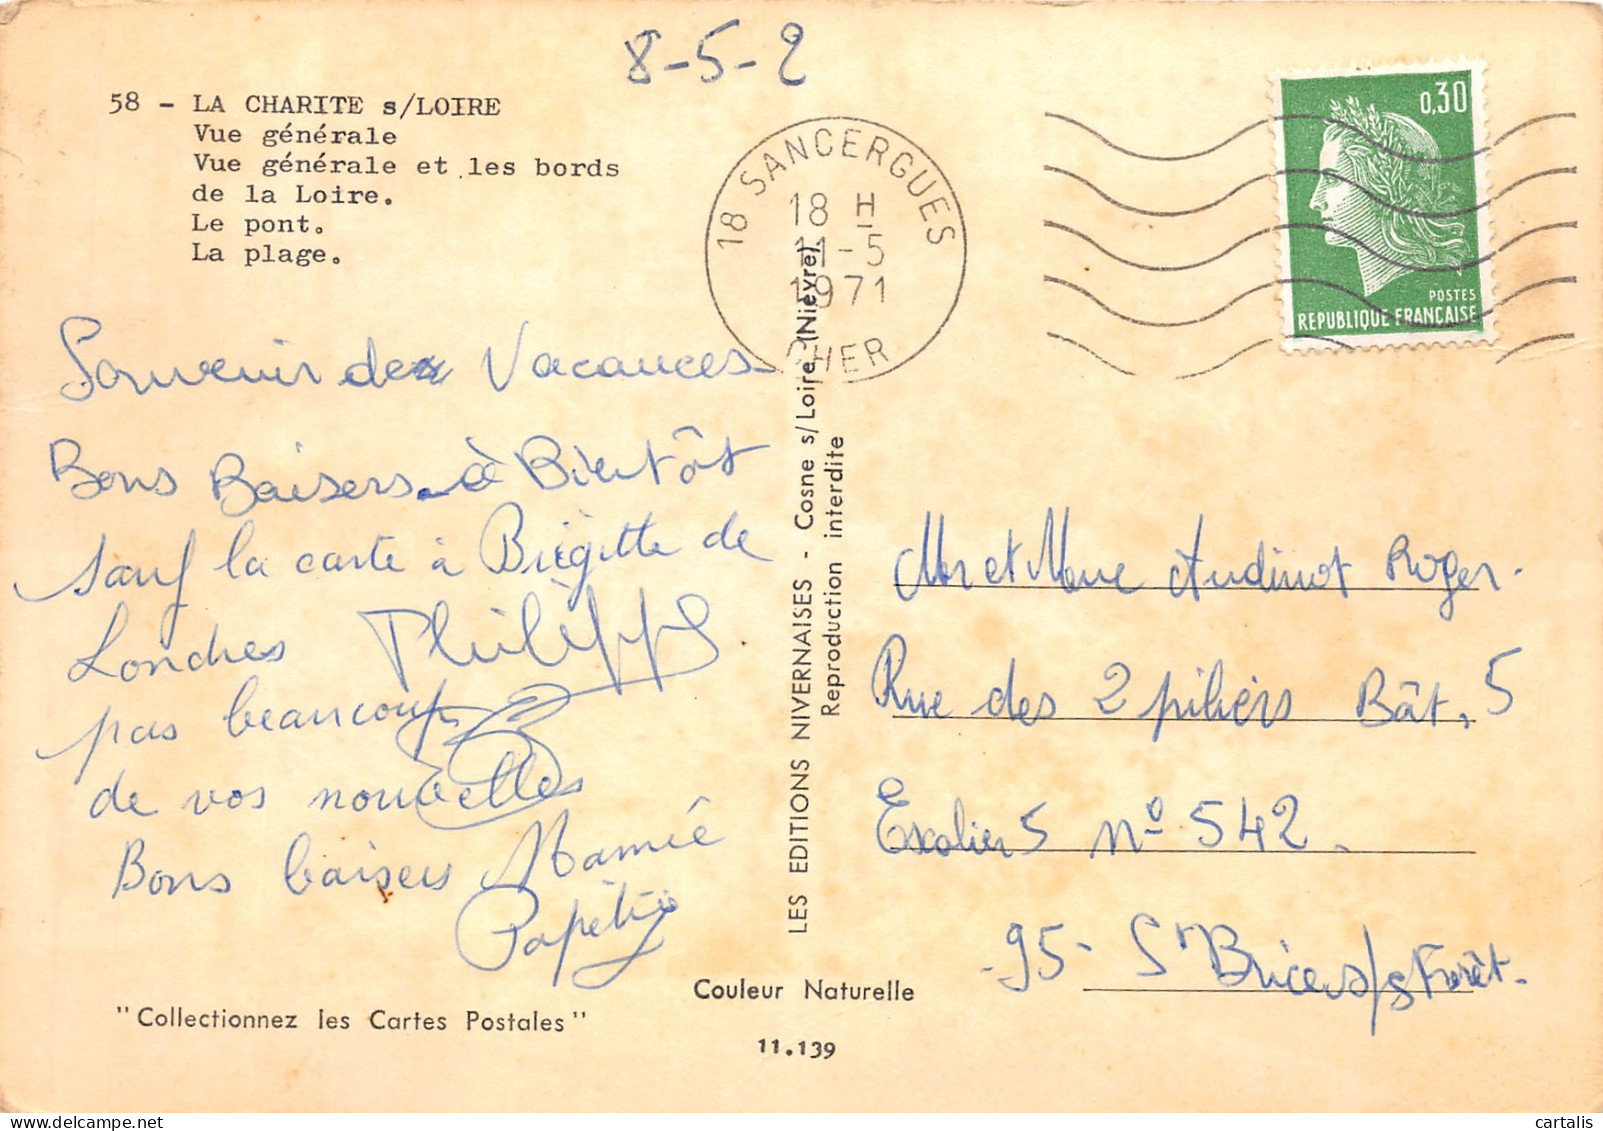 8-5-2
58 - LA CHARITE s/LOIRE
Vue générale
Vue générale et les bords
de la Loire.
Le pont.
La plage.
18 SANCERGUES
18 H
11-5
1971
CHER
0,30
POSTES
REPUBLIQUE FRANCAISE
Souvenir de Vacances
Bons Baisers à Bientôt
sauf la carte à Brigitte de
Londres Philippe
pas beaucoup
de vos nouvelles
Bons baisers Mamie
LES EDITIONS NIVERNAISES - Cosne s/Loire (Nièvre)
Reproduction interdite
Mr et Mme Audinot Roger.
Rue des 2 piliers Bât. 5
Escalier 5 nº 542.
-95- St Brice s/s Forêt.
Couleur Naturelle
"Collectionnez les Cartes Postales"
11.139
cartalis